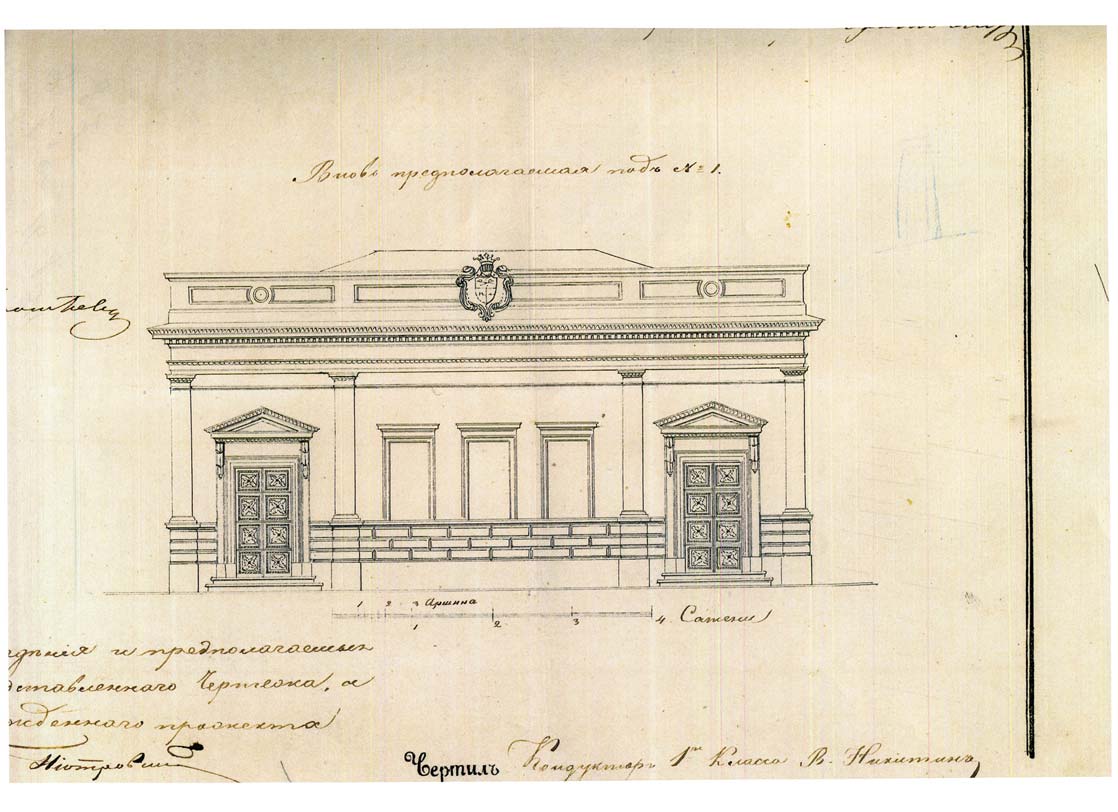 Вновь предполагаемая подъ № 1.
1 2 3 Аршина
1 2 3 4 Сажени
и предполагаемых
ставленнаго Чертежа, а
жденнаго проэкта
Чертилъ Кондукторъ 1го Класса В. Никитинъ